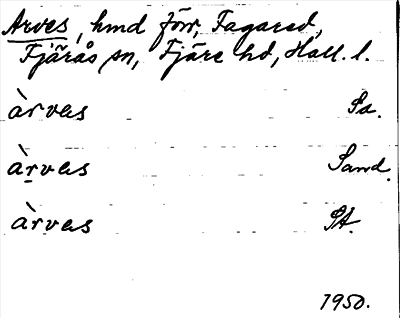 Arves, hmd förr, Fagared,
Fjärås sn, Fjäre hd, Hall. l.
àrvas Sa.
àr̤vas Sand.
àrvas St.
1950.